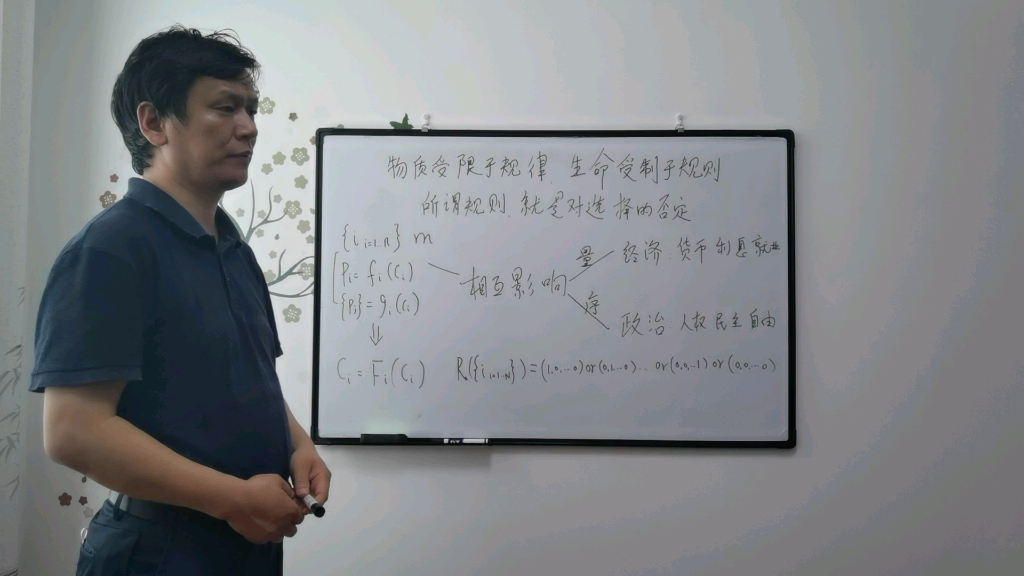 物质受限于规律、生命受制于规则
所谓规则、就是对选择的否定
{i i=1..n} m
Pi = fi(Ci)
{Pi} = gi(Ci)
⇓
Ci = Fi(Ci)
相互影响
量
经济：货币 利息 就业
序
政治：人权 民主 自由
R({i i=1..N}) = (1,0,...0) or (0,1,...0) ... or (0,0,...1) or (0,0,...0)